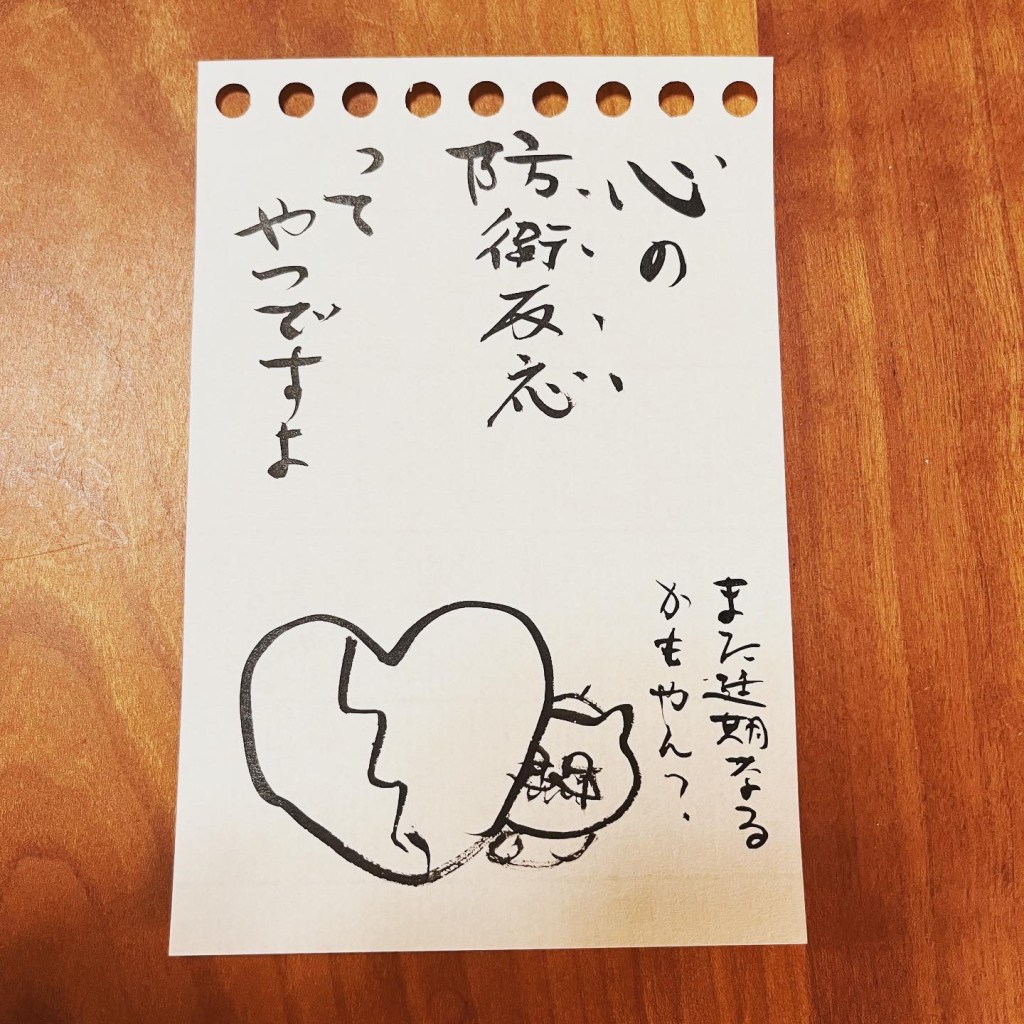 心の
防衛反応
って
やつですよ
また延期なる
かもやん?